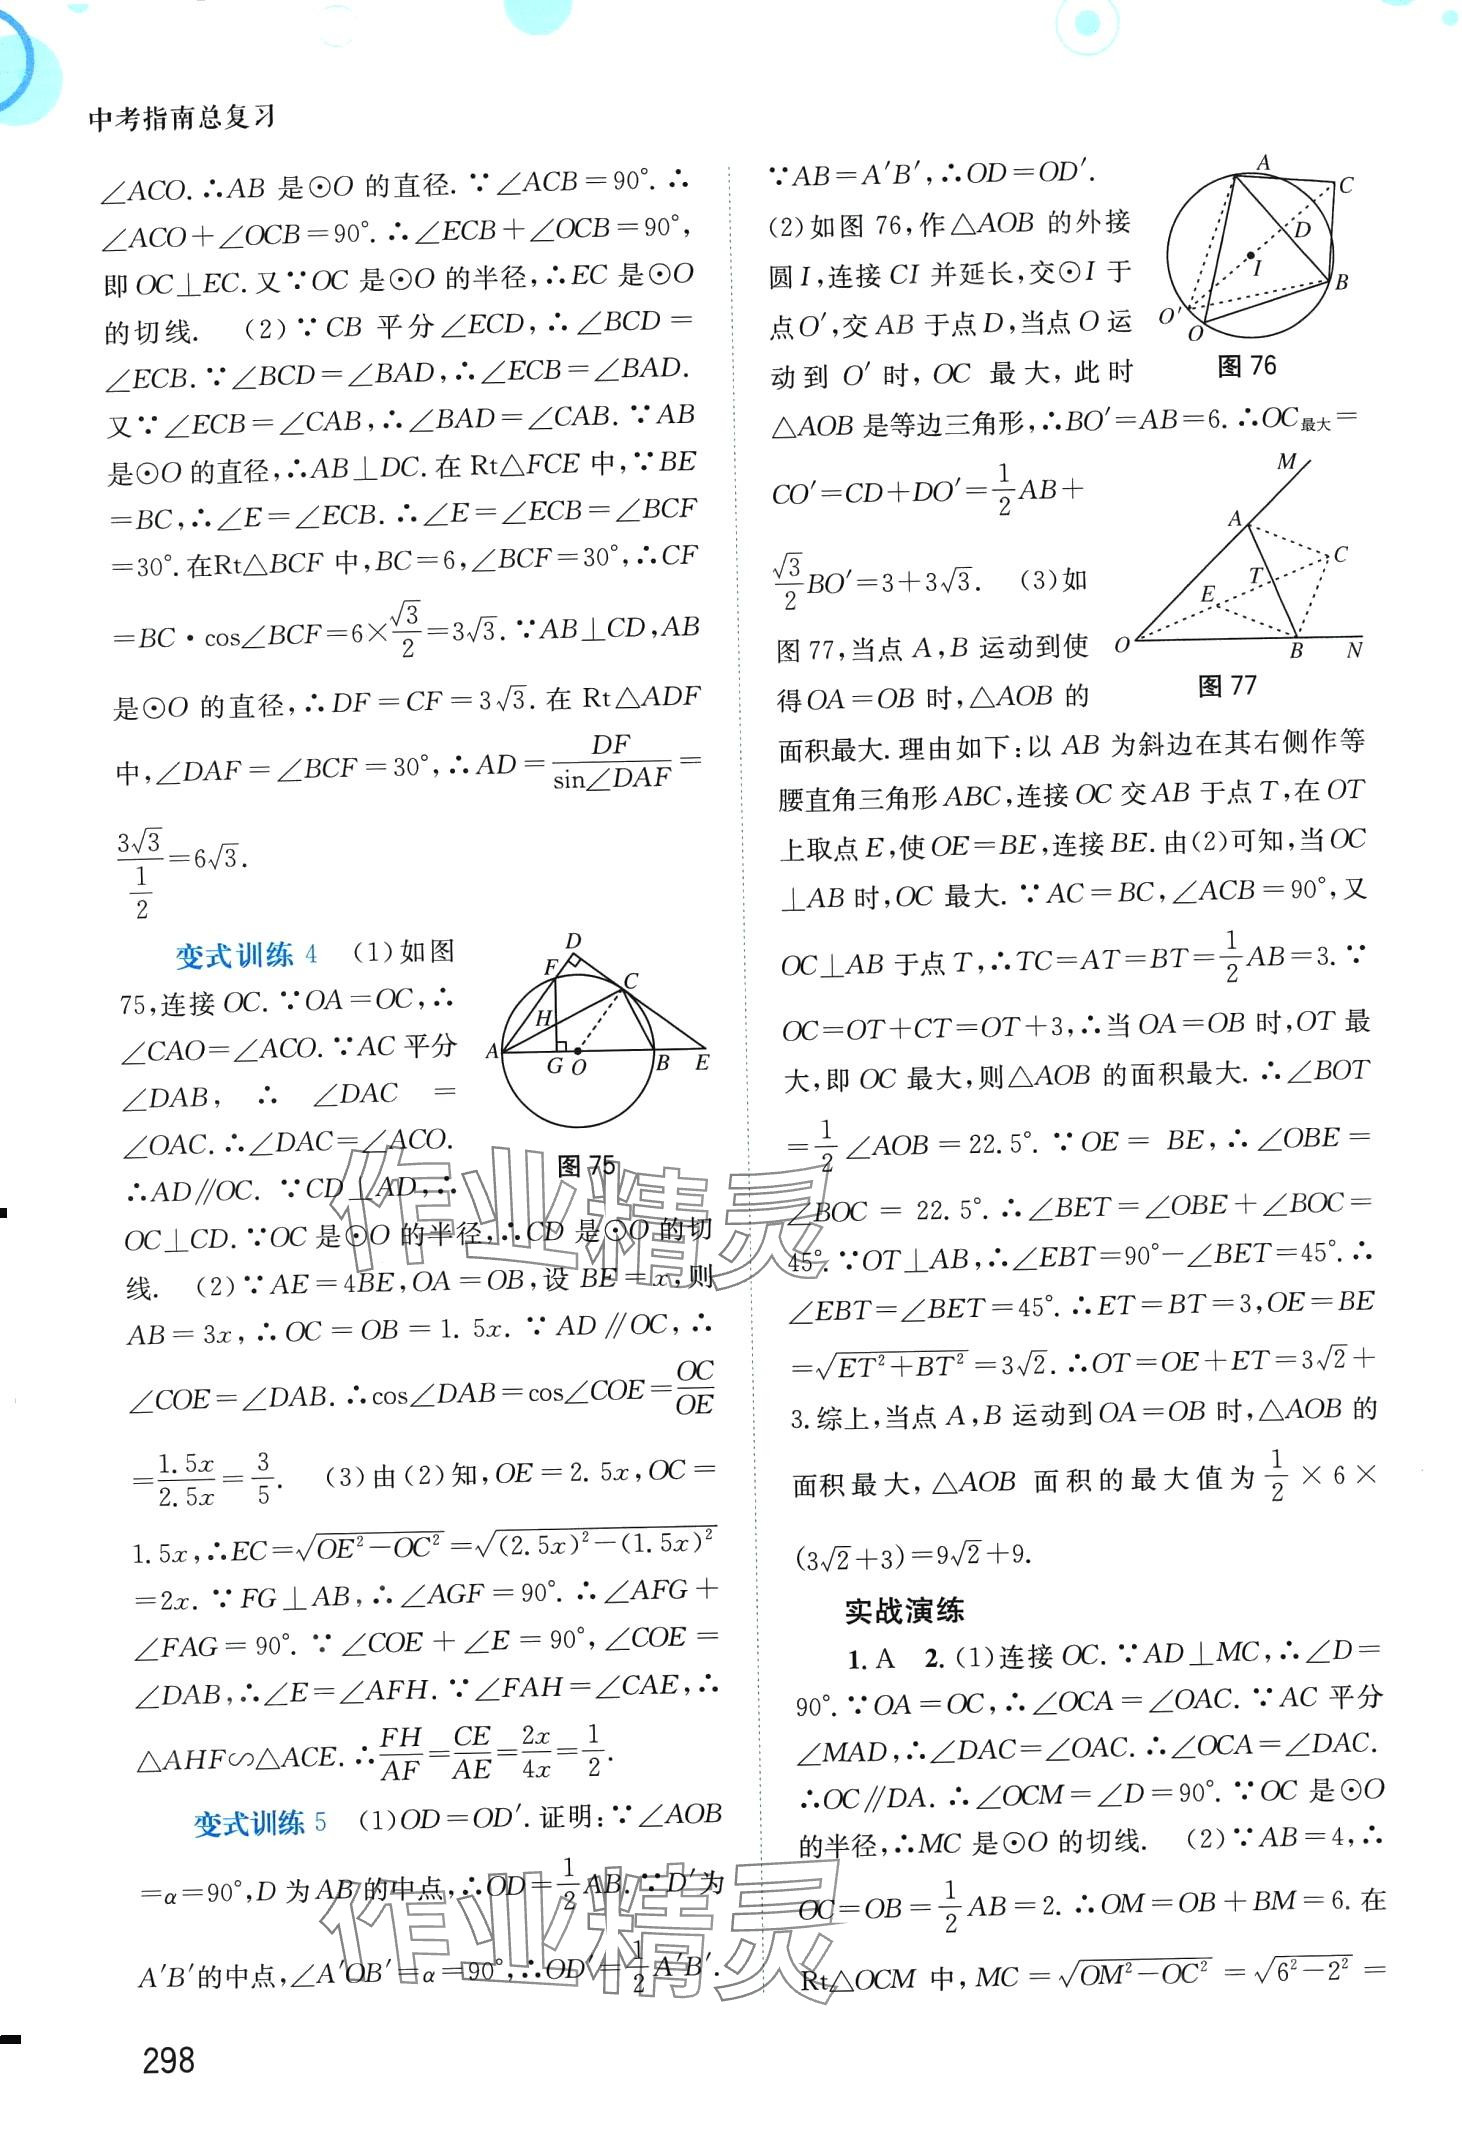 中考指南总复习
∠ACO.∴AB 是⊙O 的直径.∵∠ACB=90°.∴
∠ACO+∠OCB=90°.∴∠ECB+∠OCB=90°,
即OC⊥EC.又∵OC 是⊙O 的半径,∴EC 是⊙O
的切线. (2)∵CB 平分∠ECD,∴∠BCD=
∠ECB.∵∠BCD=∠BAD,∴∠ECB=∠BAD.
又∵∠ECB=∠CAB,∴∠BAD=∠CAB.∵AB
是⊙O 的直径,∴AB⊥DC.在 Rt△FCE 中,∵BE
=BC,∴∠E=∠ECB.∴∠E=∠ECB=∠BCF
=30°.在Rt△BCF 中,BC=6,∠BCF=30°,∴CF
=BC·cos∠BCF=6×√3/2=3√3.∵AB⊥CD,AB
是⊙O 的直径,∴DF=CF=3√3.在 Rt△ADF
中,∠DAF=∠BCF=30°,∴AD=DF/sin∠DAF=
3√3/(1/2)=6√3.
变式训练 4 (1)如图
75,连接 OC.∵OA=OC,∴
∠CAO=∠ACO.∵AC 平分
∠DAB,∴∠DAC=
∠OAC.∴∠DAC=∠ACO.
∴AD∥OC. ∵CD⊥AD,∴
D
F
C
H
A
G
O
B
E
图 75
OC⊥CD.∵OC 是⊙O 的半径,∴CD 是⊙O 的切
线. (2)∵AE=4BE,OA=OB,设 BE=x,则
AB=3x,∴OC=OB=1.5x.∵AD∥OC,∴
∠COE=∠DAB.∴cos∠DAB=cos∠COE=OC/OE
=1.5x/2.5x=3/5. (3)由(2)知,OE=2.5x,OC=
1.5x,∴EC=√(OE²-OC²)=√((2.5x)²-(1.5x)²)
=2x.∵FG⊥AB,∴∠AGF=90°.∴∠AFG+
∠FAG=90°.∵∠COE+∠E=90°,∠COE=
∠DAB,∴∠E=∠AFH.∵∠FAH=∠CAE,∴
△AHF∽△ACE.∴FH/AF=CE/AE=2x/4x=1/2.
变式训练 5 (1)OD=OD′.证明:∵∠AOB
=α=90°,D 为 AB 的中点,∴OD=1/2AB.∵D′为
A′B′的中点,∠A′OB′=α=90°,∴OD′=1/2A′B′.
298
∵AB=A′B′,∴OD=OD′.
(2)如图 76,作△AOB 的外接
圆 I,连接 CI 并延长,交⊙I 于
点O′,交 AB 于点 D,当点 O 运
动到 O′ 时,OC 最大,此时
A
C
D
I
B
O′
O
图 76
△AOB 是等边三角形,∴BO′=AB=6.∴OC最大=
CO′=CD+DO′=1/2AB+
√3/2BO′=3+3√3. (3)如
图 77,当点 A,B 运动到使
得OA=OB 时,△AOB 的
M
A
C
T
E
O
B
N
图 77
面积最大.理由如下:以 AB 为斜边在其右侧作等
腰直角三角形ABC,连接OC 交AB 于点T,在OT
上取点E,使OE=BE,连接BE.由(2)可知,当OC
⊥AB 时,OC 最大.∵AC=BC,∠ACB=90°,又
OC⊥AB 于点T,∴TC=AT=BT=1/2AB=3.∵
OC=OT+CT=OT+3,∴当 OA=OB 时,OT 最
大,即 OC 最大,则△AOB 的面积最大.∴∠BOT
=1/2∠AOB=22.5°.∵OE= BE,∴∠OBE=
∠BOC=22.5°.∴∠BET=∠OBE+∠BOC=
45°.∵OT⊥AB,∴∠EBT=90°-∠BET=45°.∴
∠EBT=∠BET=45°.∴ET=BT=3,OE=BE
=√(ET²+BT²)=3√2.∴OT=OE+ET=3√2+
3.综上,当点 A,B 运动到OA=OB 时,△AOB 的
面积最大,△AOB 面积的最大值为1/2×6×
(3√2+3)=9√2+9.
实战演练
1. A 2. (1)连接 OC.∵AD⊥MC,∴∠D=
90°.∵OA=OC,∴∠OCA=∠OAC.∵AC 平分
∠MAD,∴∠DAC=∠OAC.∴∠OCA=∠DAC.
∴OC∥DA.∴∠OCM=∠D=90°.∵OC 是⊙O
的半径,∴MC 是⊙O 的切线. (2)∵AB=4,∴
OC=OB=1/2AB=2.∴OM=OB+BM=6.在
Rt△OCM 中,MC=√(OM²-OC²)=√(6²-2²)=
作业精灵
作业精灵